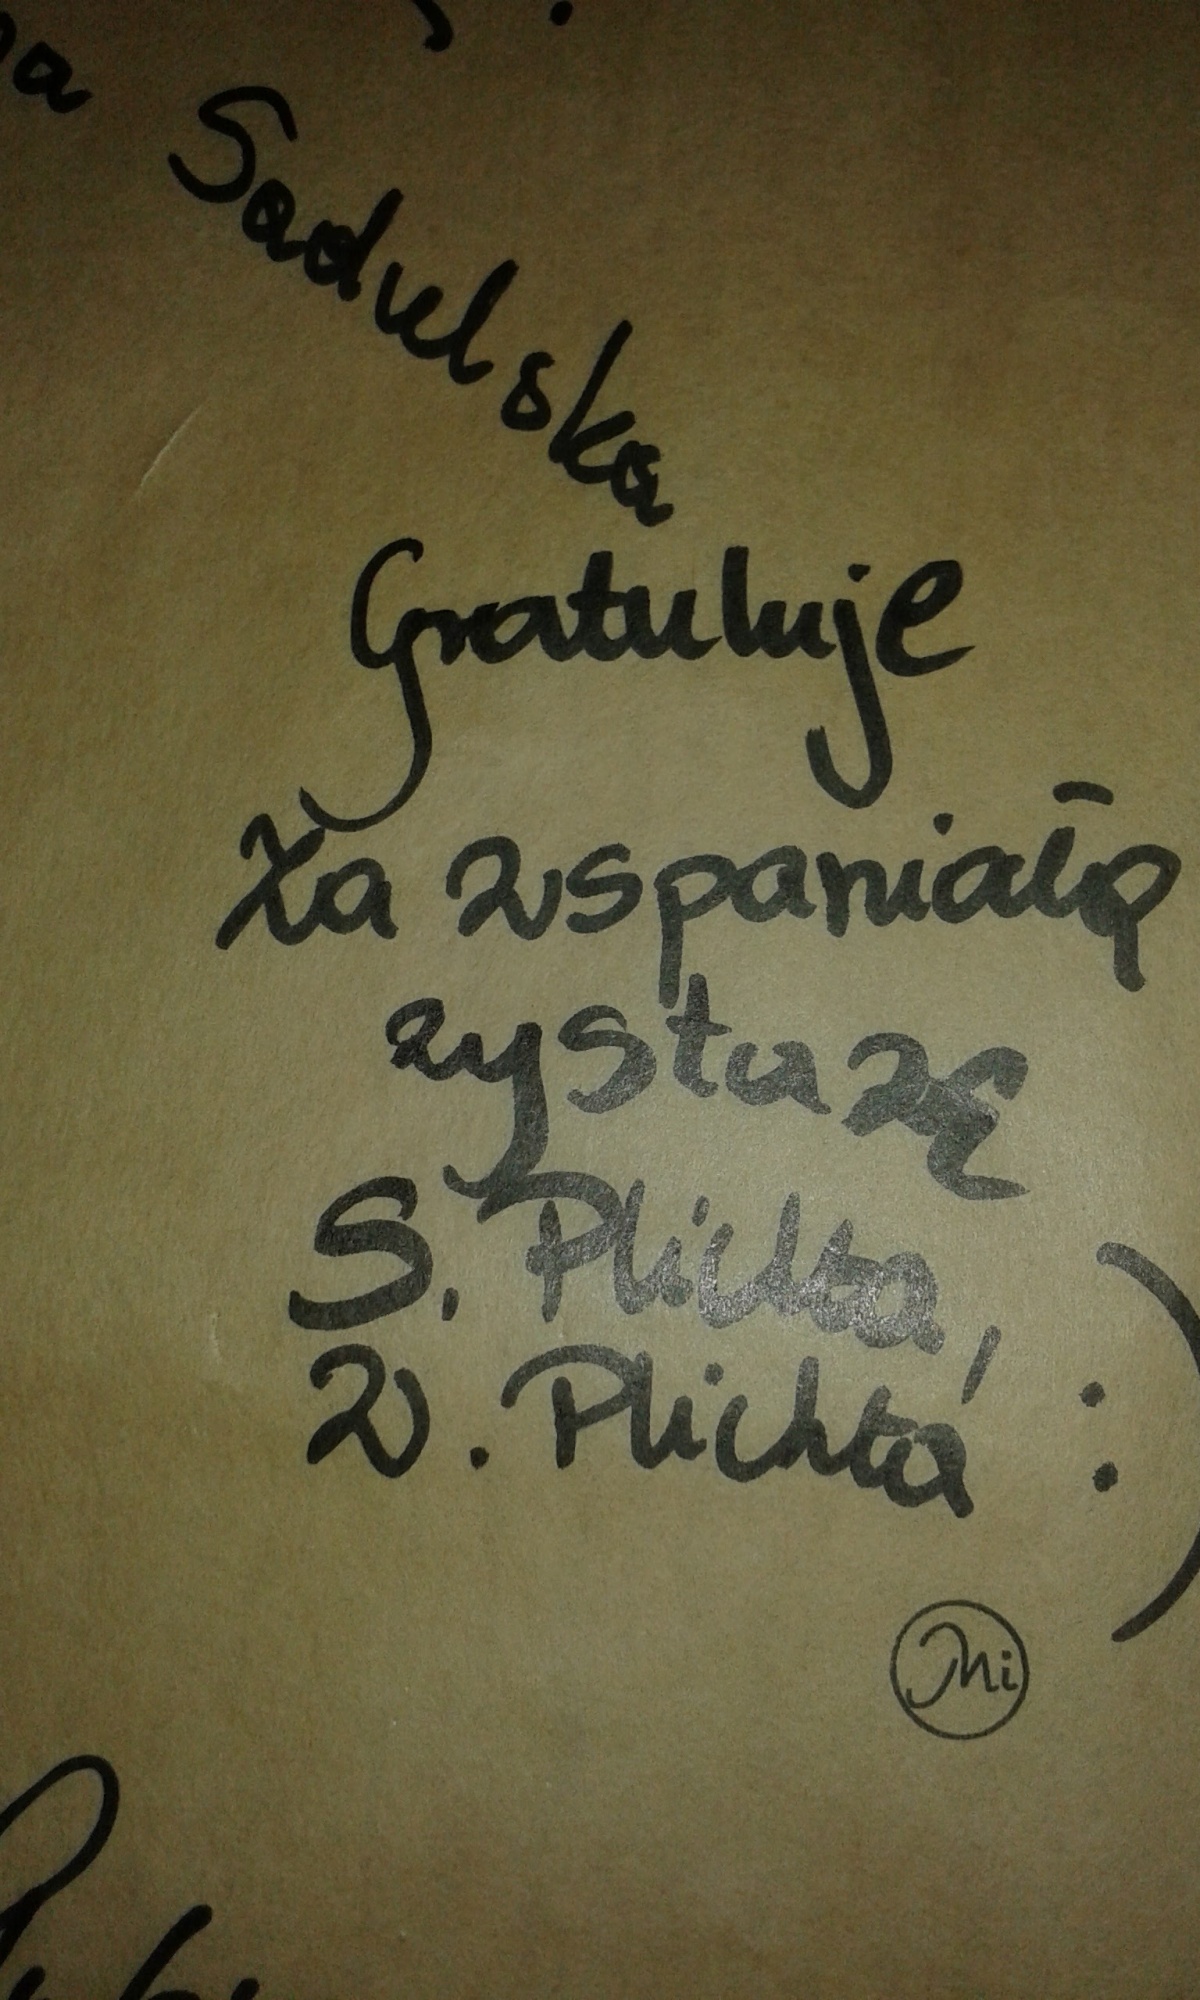 Sadulska
Gratuluje
Za wspaniałą
wystawę
S. Plichta,
W. Plichta :)
Mi